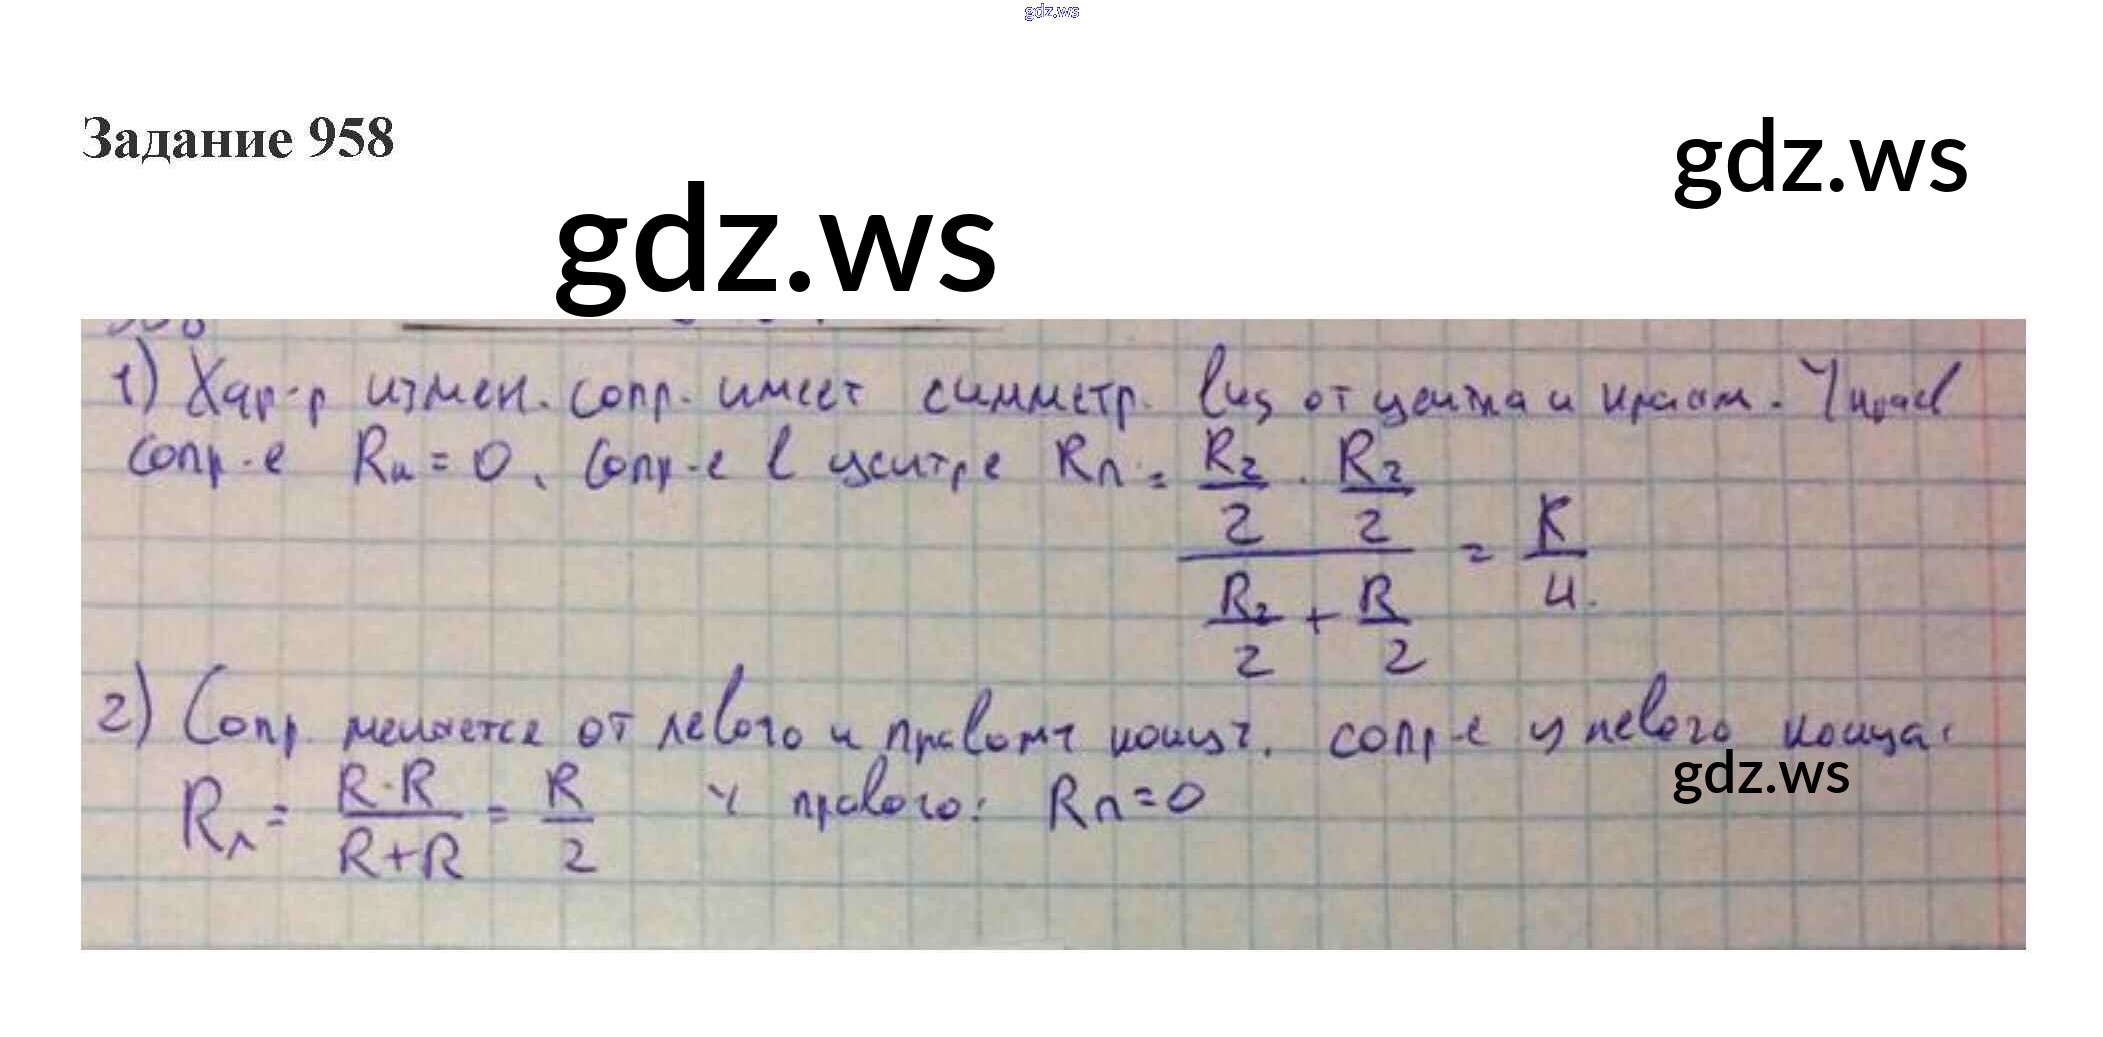 gdz.ws
Задание 958
gdz.ws
gdz.ws
1) Хар-р измен. сопр. имеет симметр. вид от центра и краям. У краев
сопр-е Rк = 0, Сопр-е в центре Rп = (R2/2 · R2/2) / (R2/2 + R/2) = R/4.
2) Сопр. меняется от левого к правому концу. сопр-е у левого конца:
Rл = R·R / R+R = R/2 У правого: Rп = 0
gdz.ws